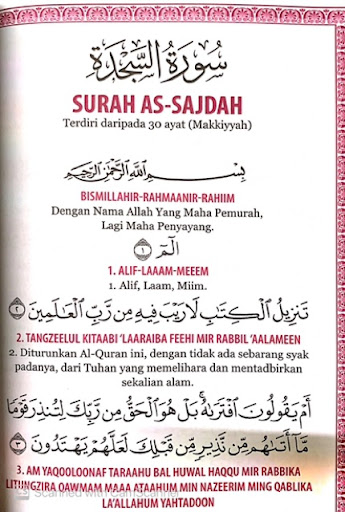 سُورَةُ السَّجْدَةِ
SURAH AS-SAJDAH
Terdiri daripada 30 ayat (Makkiyyah)
بِسْمِ اللَّهِ الرَّحْمَٰنِ الرَّحِيمِ
BISMILLAHIR-RAHMAANIR-RAHIIM
Dengan Nama Allah Yang Maha Pemurah,
Lagi Maha Penyayang.
الٓمٓ ۝١
1. ALIF-LAAAM-MEEEM
1. Alif, Laam, Miim.
تَنزِيلُ الْكِتَابِ لَا رَيْبَ فِيهِ مِن رَّبِّ الْعَالَمِينَ ۝٢
2. TANGZEELUL KITAABI 'LAARAIBA FEEHI MIR RABBIL 'AALAMEEN
2. Diturunkan Al-Quran ini, dengan tidak ada sebarang syak
padanya, dari Tuhan yang memelihara dan mentadbirkan
sekalian alam.
أَمْ يَقُولُونَ افْتَرَاهُ ۚ بَلْ هُوَ الْحَقُّ مِن رَّبِّكَ لِتُنذِرَ قَوْمًا
مَّا أَتَاهُم مِّن نَّذِيرٍ مِّن قَبْلِكَ لَعَلَّهُمْ يَهْتَدُونَ ۝٣
3. AM YAQOOLOONAF TARAAHU BAL HUWAL HAQQU MIR RABBIKA
LITUNGZIRA QAWMAM MAAA ATAAHUM MIN NAZEERIM MING QABLIKA
LA'ALLAHUM YAHTADOON
Scanned with CamScanner